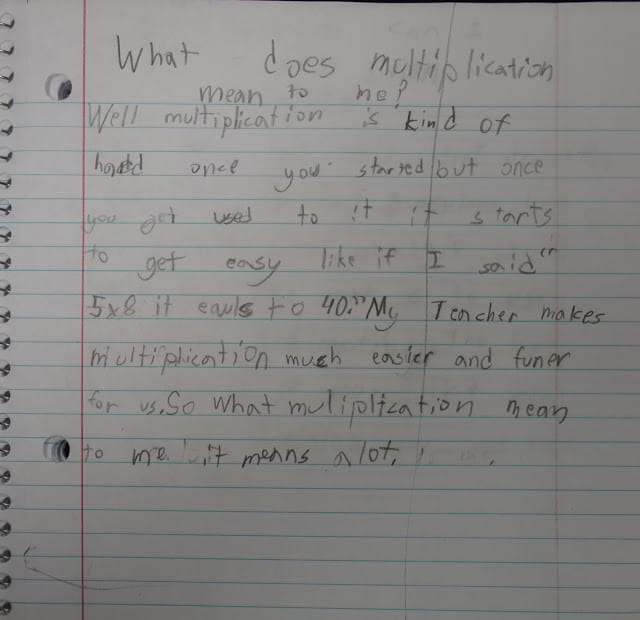 What does multiplication
mean to me?
Well multiplication is kind of
hard once you started but once
you get used to it it starts
to get easy like if I said "
5x8 it eauls to 40." My Teacher makes
multiplication much easier and funer
for us. So what muliplication mean
to me. it means a lot.